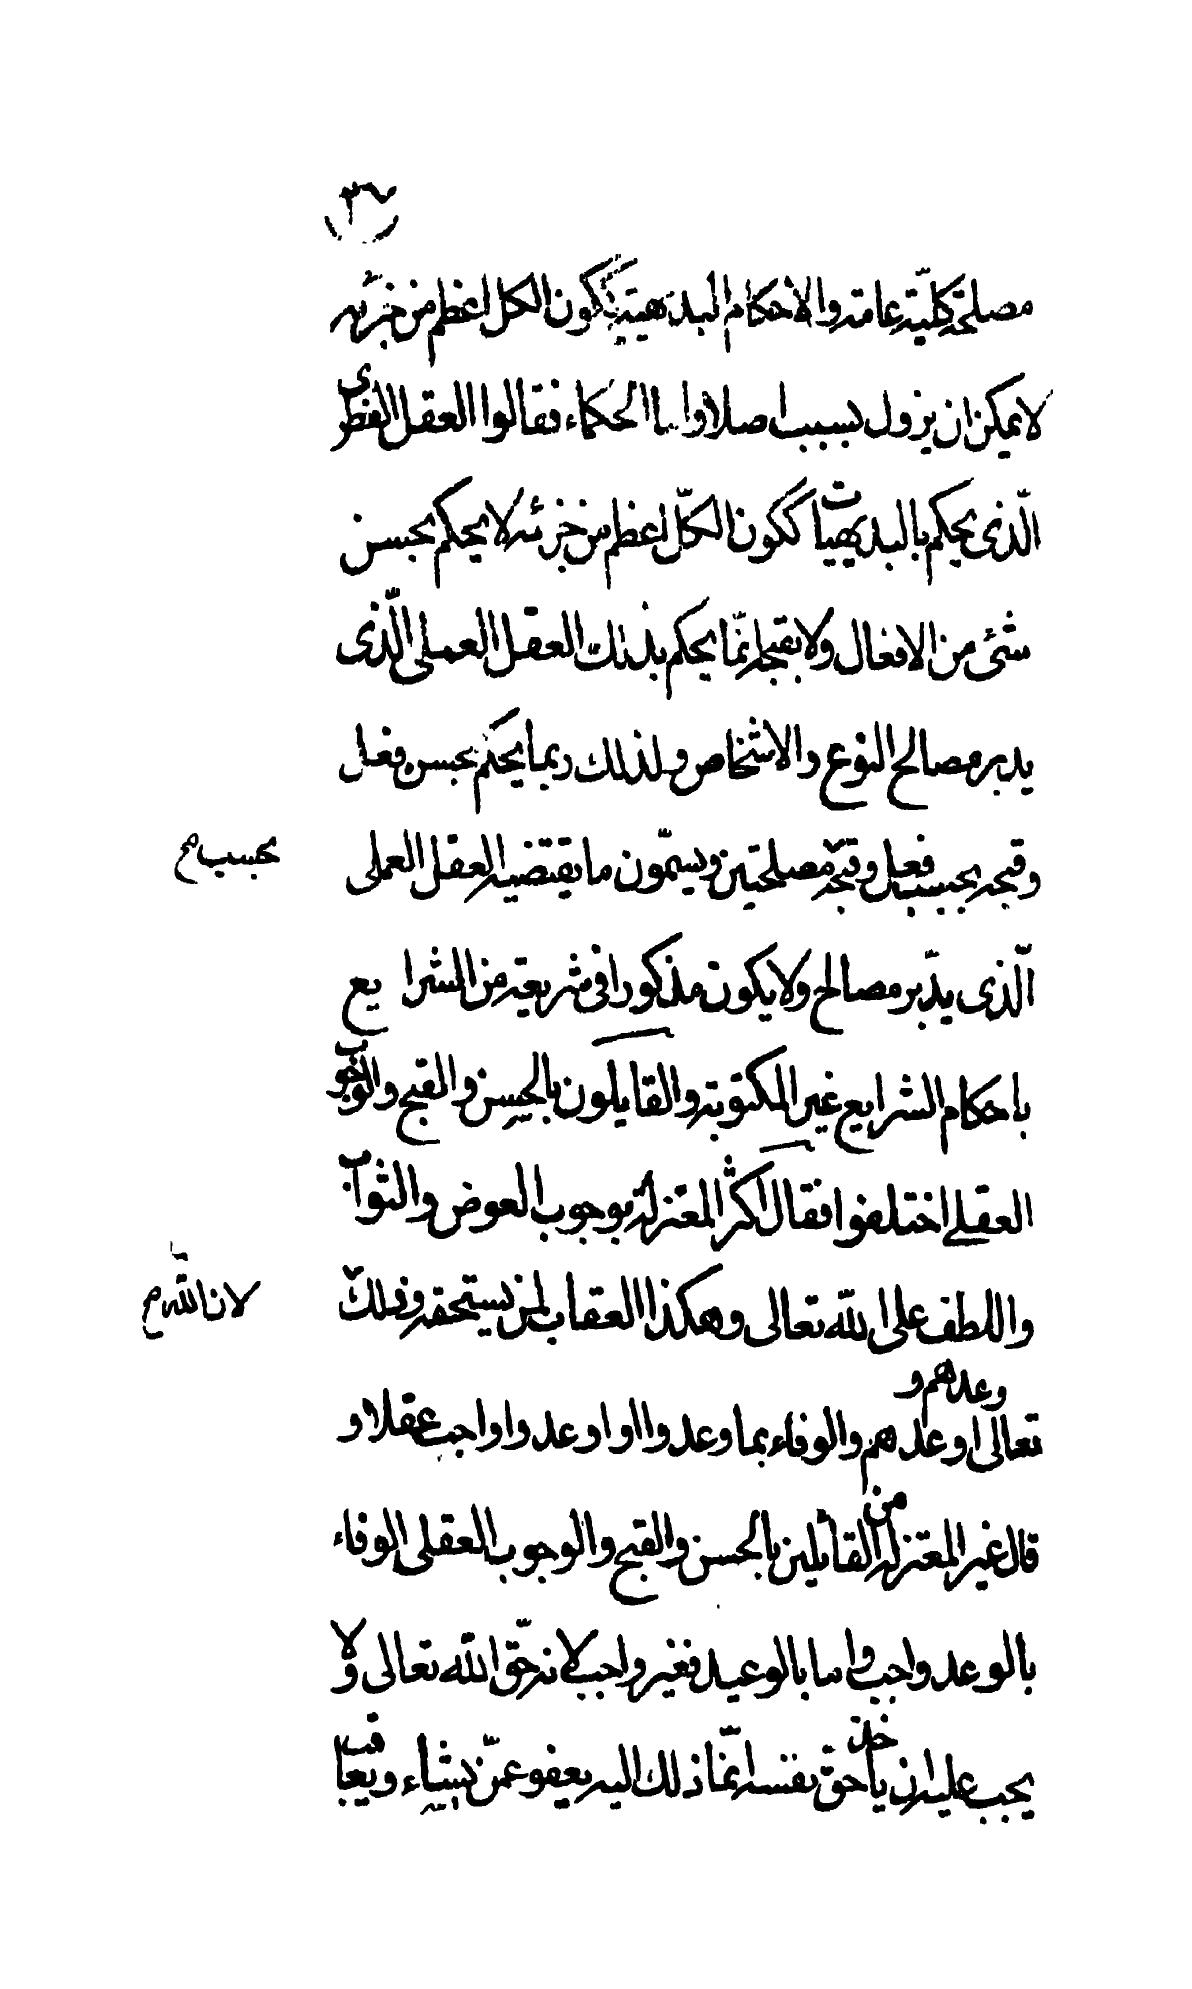 ٣٧
مصلحة كلية عامة والاحكام البديهية ككون الكل اعظم من جزئه
لا يمكن ان يزول بسبب اصلا واما الحكماء فقالوا العقل الفطرى
الّذى يحكم بالبديهيات ككون الكلّ اعظم من جزئه لا يحكم بحسن
شئ من الافعال ولا بقبحه انّما يحكم بذلك العقل العملى الّذى
يدبر مصالح النوع والاشخاص ولذلك ربما يحكم بحسن فعل
وقبحه بحسب فعل وقبحه مصلحتين ويسمّون ما يقتضيه العقل العملى
بحسب صح
الّذى يدّبر مصالح ولا يكون مذكورا فى شريعة من الشرايع
باحكام الشرايع غير المكتوبة والقايلون بالحسن والقبح والوجوب
العقلى اختلفوا فقال اكثر المعتزلة بوجوب العوض والثواب
واللطف على الله تعالى وهكذا العقاب لمن يستحقه وذلك
لان الله صح
وعدهم و
تعالى اوعدهم والوفاء بما وعدوا او اوعدوا واجب عقلا و
قال غير المعتزلة من القائلين بالحسن والقبح والوجوب العقلى الوفاء
بالوعد واجب واما بالوعيد فغير واجب لانه حقّ الله تعالى ولا
يجب عليه ان ياخذ حقّ نفسه انّما ذلك اليه يعفو عمّن يشاء ويعاقب